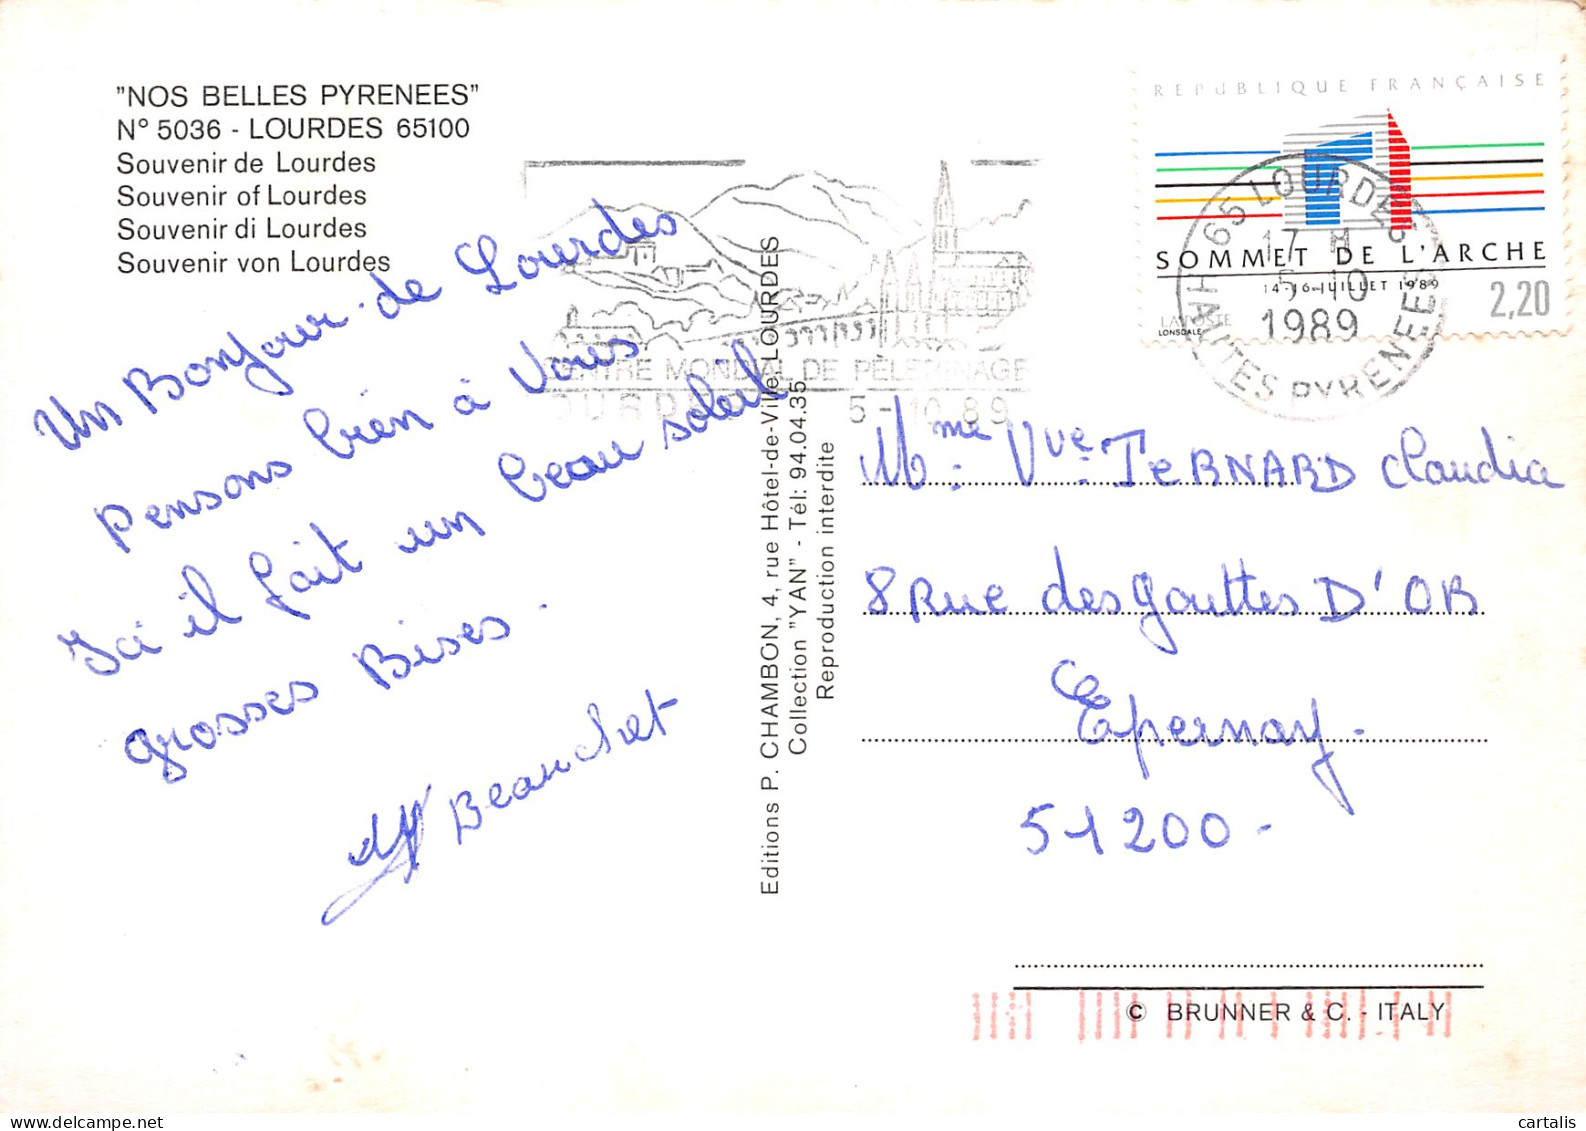 "NOS BELLES PYRENEES"
N° 5036 - LOURDES 65100
Souvenir de Lourdes
Souvenir of Lourdes
Souvenir di Lourdes
Souvenir von Lourdes
Un Bonjour de Lourdes
Pensons bien à Vous
Ici il fait un beau soleil
grosses Bises.
Beauchet
Editions P. CHAMBON, 4, rue Hôtel-de-Ville LOURDES
Collection "YAN" - Tél: 94.04.35
Reproduction interdite
CENTRE MONDIAL DE PÈLERINAGE
LOURDES 5-10.89
REPUBLIQUE FRANÇAISE
SOMMET DE L'ARCHE
14-16 JUILLET 1989
2,20
LA POSTE
LONSDALE
65 LOURDES
17 H
5-10
1989
HAUTES PYRENEES
Mme Vve TERNARD Claudia
8 Rue des Gouttes D'OR
Epernay.
51200-
© BRUNNER & C. - ITALY
cartalis
delcampe.net